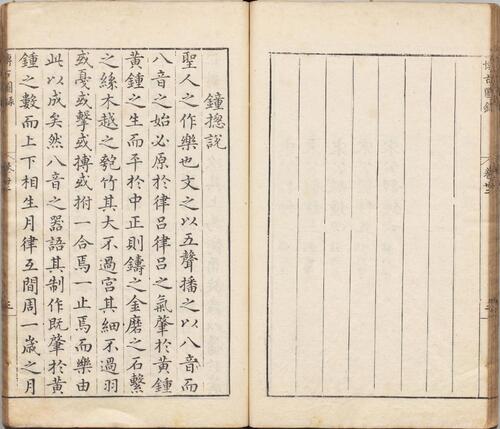 鐘揔說
聖人之作樂也文之以五聲播之以八音而
八音之始必原於律呂律呂之氣肇於黃鍾
黃鍾之生而平於中正則鑄之金磨之石繫
之絲木越之匏竹其大不過宮其細不過羽
或戞或擊或搏或拊一合焉一止焉而樂由
此以成矣然八音之器語其制作既肇於黃
鍾之數而上下相生月律互間周一歲之月
博古圖錄